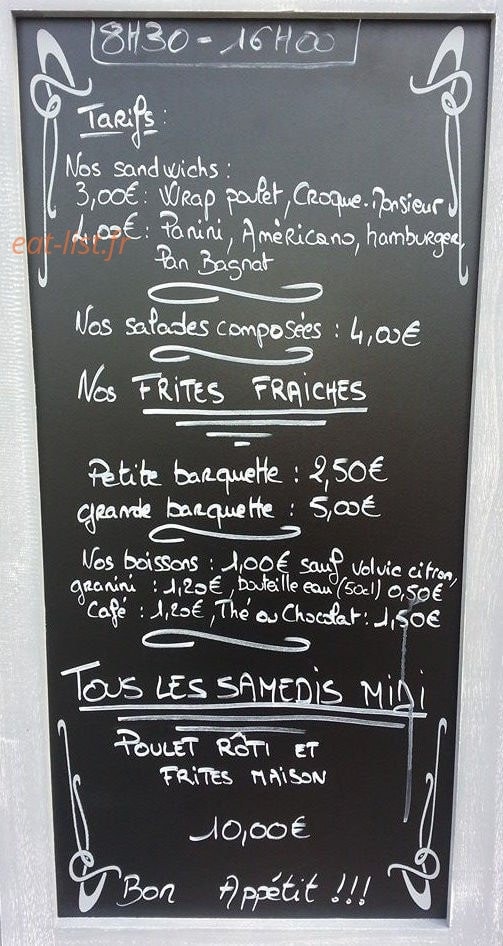 8H30 - 16H00
Tarifs :
Nos sandwichs :
3,00€ : Wrap poulet, Croque-Monsieur
4,00€ : Panini, Américano, hamburger,
eat-list.fr
Pan Bagnat
Nos salades composées : 4,00€
Nos FRITES FRAICHES
Petite barquette : 2,50€
grande barquette : 5,00€
Nos boissons : 1,00€ sauf volvic citron,
granini : 1,20€, bouteille eau (50cl) 0,50€
Café : 1,20€, Thé ou Chocolat : 1,50€
TOUS LES SAMEDIS MIDI
POULET RÔTI ET
FRITES MAISON
10,00€
Bon Appétit !!!